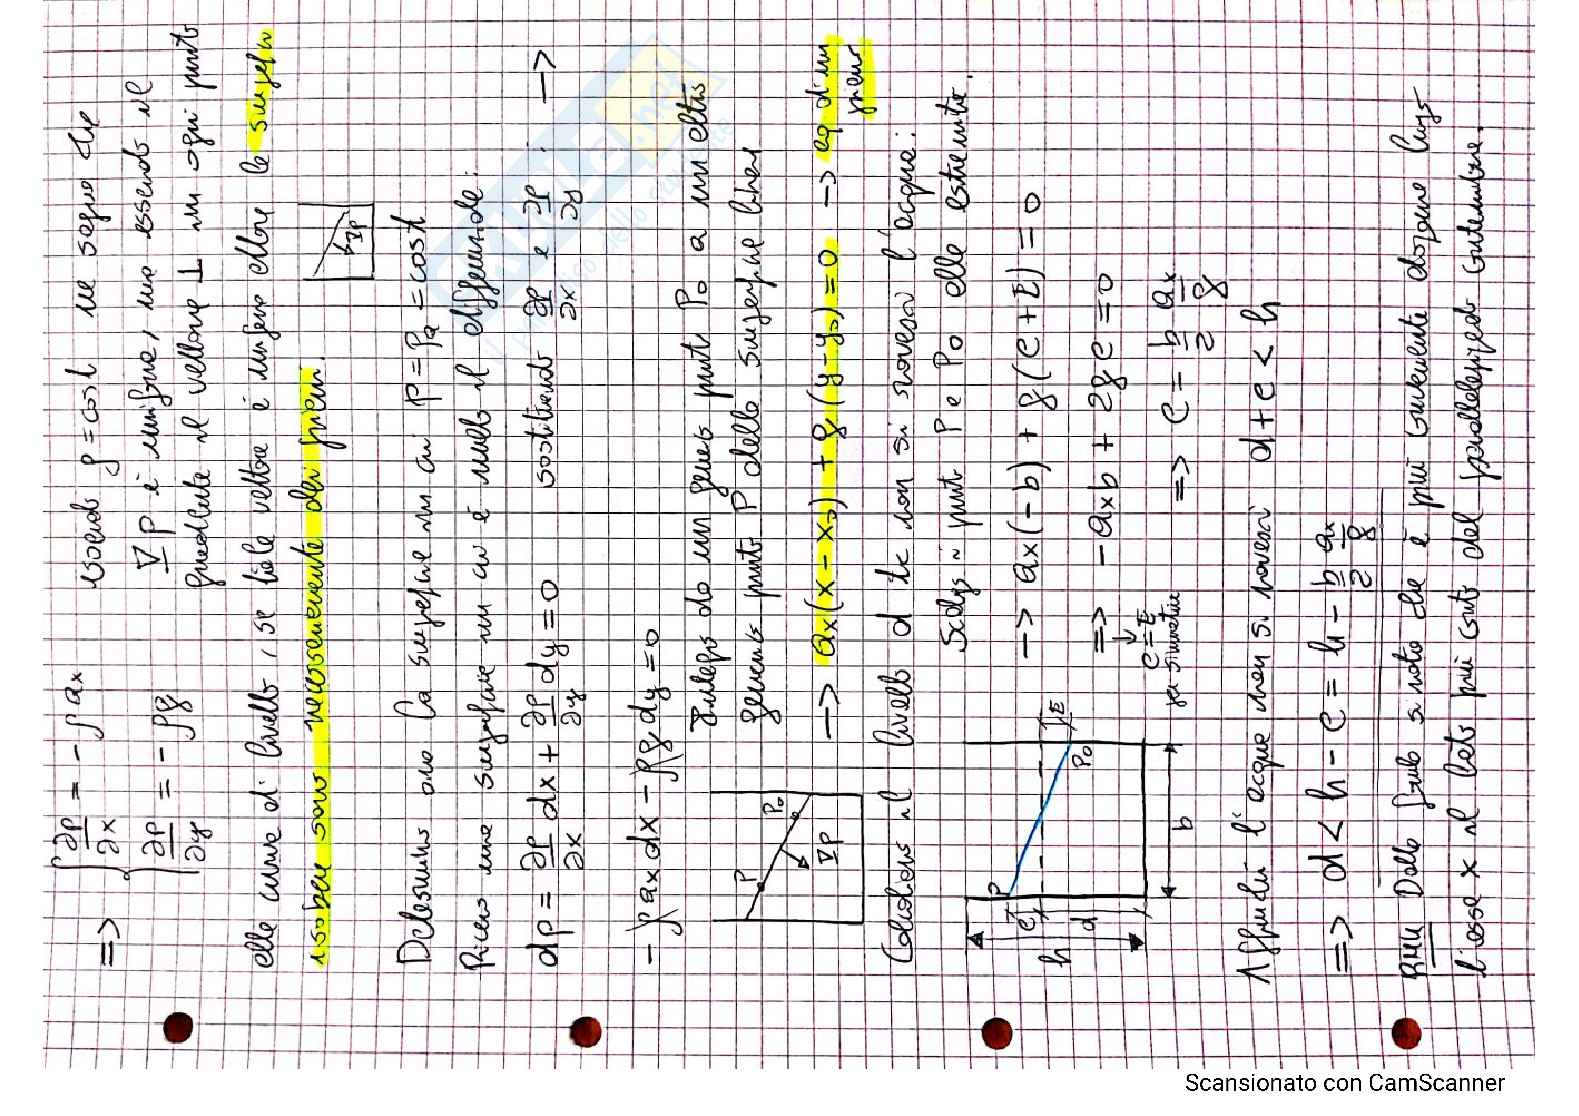 => { ∂p/∂x = - ρ ax
∂p/∂y = - ρg
essendo ρ = cost ne segue che
∇p è uniforme, ma essendo il
gradiente il vettore ⊥ in ogni punto
alle curve di livello, se tale vettore è uniforme allora le superfici
isobare sono necessariamente dei piani.
∇p
Determino ora la superficie su cui p = pa = cost
Ricerco una superficie su cui è nullo il differenziale:
dp = ∂p/∂x dx + ∂p/∂y dy = 0 sostituendo ∂p/∂x e ∂p/∂y : ->
- ρ ax dx - ρg dy = 0
Integro da un generico punto P0 a un altro
generico punto P della superficie libera
-> ax(x - x0) + g(y - y0) = 0 -> eq di un
piano
P
P0
∇p
Calcoliamo il livello d tc non si rovesci l'acqua:
Scelgo i punti P e P0 alle estremità.
-> ax(-b) + g(e + E) = 0
=> - axb + 2ge = 0
e = E
per simmetria
=> e = b/2 ax/g
P
P0
E
e
h
d
b
Affinché l'acqua non si rovesci d + e < h
=> d < h - e = h - b/2 ax/g
l'asse x il lato più corto del parallelepipedo contenitore.